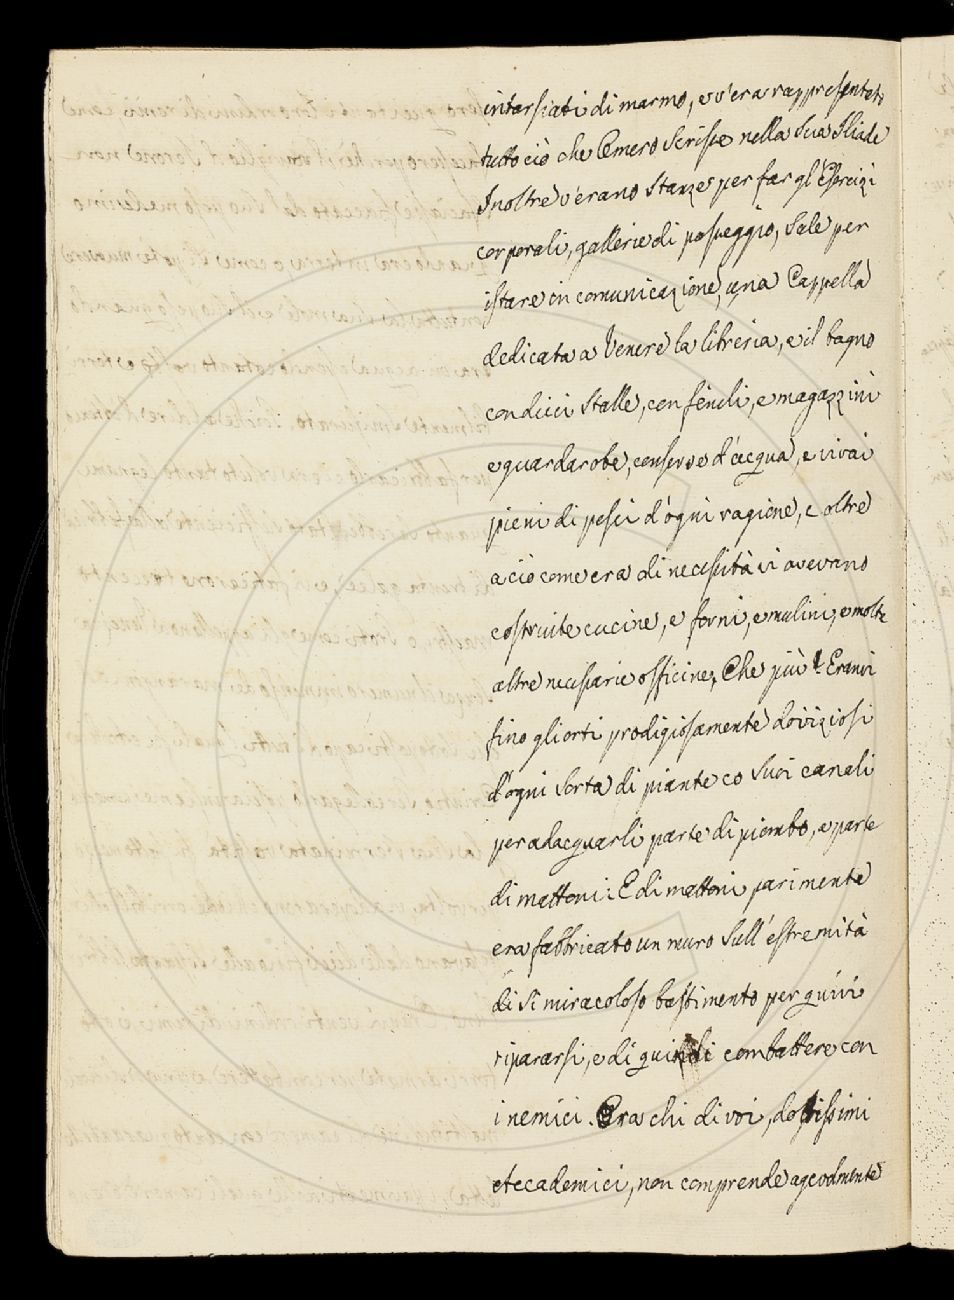 intarsiati di marmo, e v'era rappresentato
tutto ciò che Omero scrisse nella sua Iliade
Inoltre v'erano stanze per far gl'Esercizi
corporali, gallerie di passeggio, sale per
istare in comunicazione, una Cappella
dedicata a Venere la libreria, e il bagno
con dieci stalle, con fenili, e magazzini
e guardarobe, conserve d'acqua, e vivai
pieni di pesci d'ogni ragione, e oltre
a ciò come era di necessità vi avevano
costruite cucine, e forni, e mulini, e molte
altre necessarie officine, Che più! Eranvi
fino gli orti prodigiosamente doviziosi
d'ogni sorta di piante co suoi canali
per adacquarli parte di piombo, e parte
di mattoni: E di mattoni parimente
era fabbricato un muro sull'estremità
di si miracoloso bastimento per quivi
ripararsi, e di quindi combattere con
i nemici. Ora chi di voi, dottissimi
Accademici, non comprende agevolmente